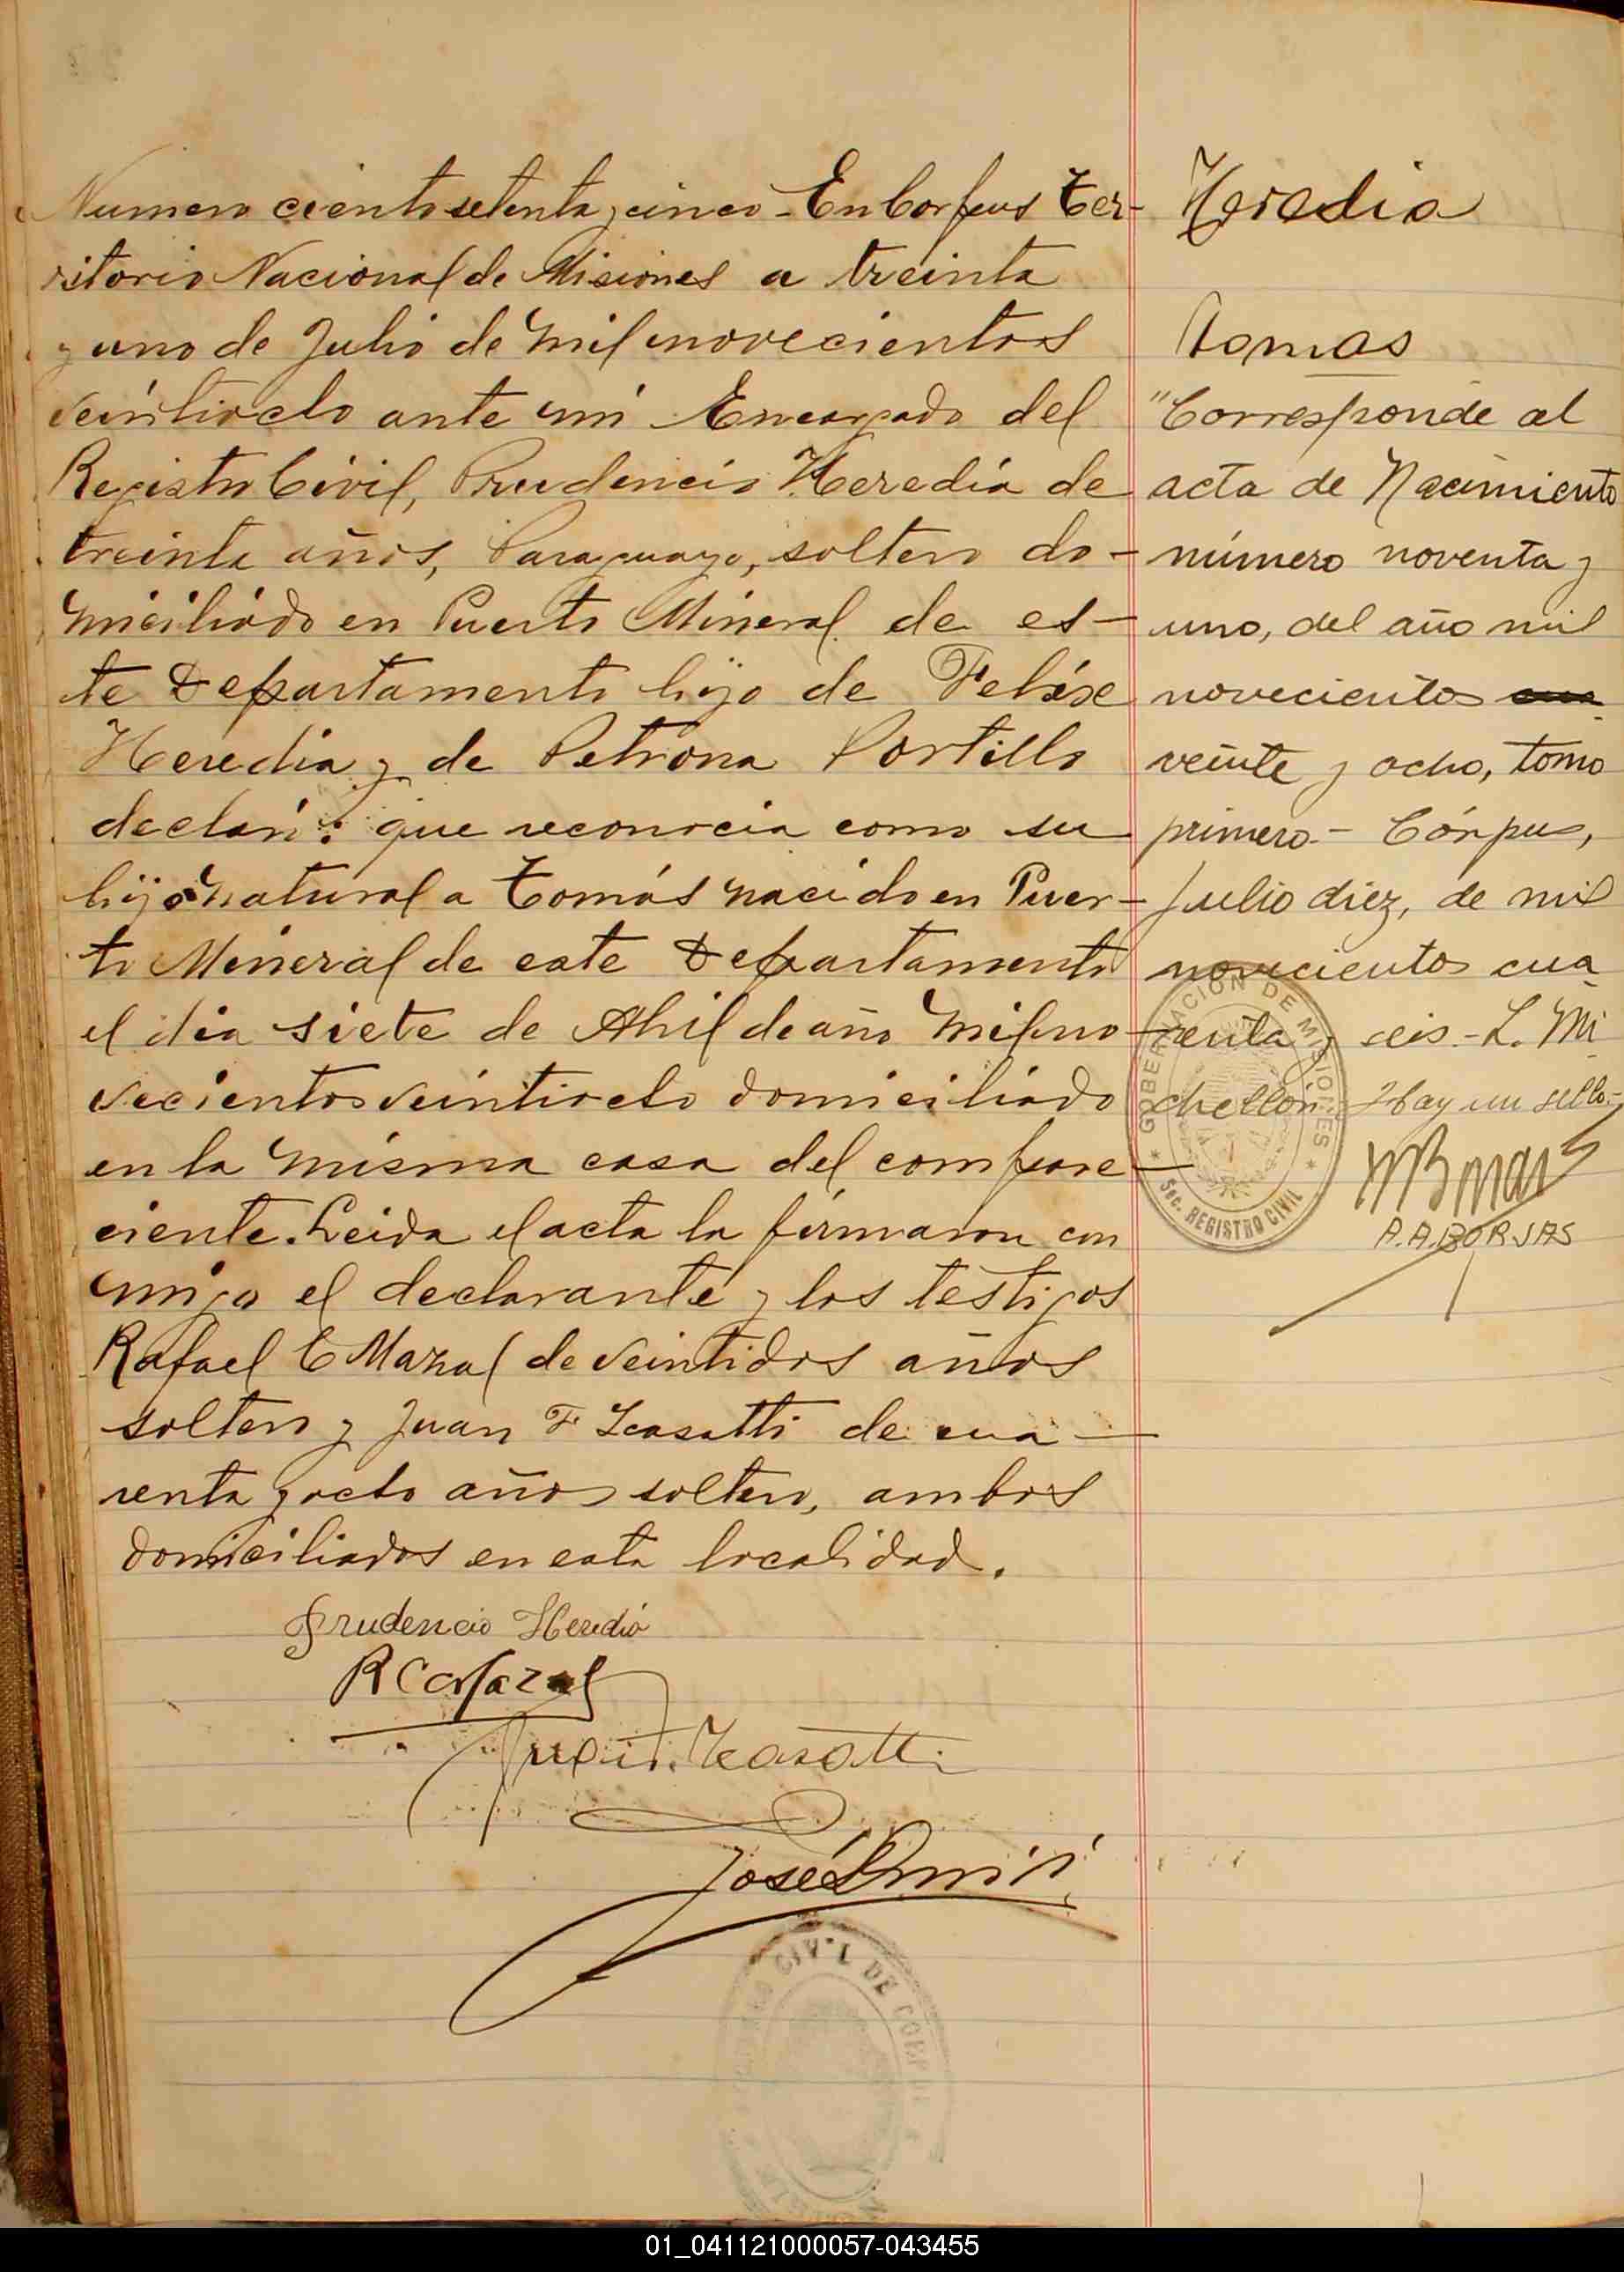 Numero ciento setenta y cinco - En Corpus Ter-
ritorio Nacional de Misiones a treinta
y uno de Julio de mil novecientos
veintiocho ante mi Encargado del
Registro Civil, Prudencio Heredia de
treinta años, Paraguayo, soltero do-
miciliado en Puerto Mineral de es-
te Departamento hijo de
Heredia y de Petrona Portillo
declaró: que reconocia como su
hijo natural a Tomás nacido en Puer-
to Mineral de este Departamento
el dia siete de Abril de año mil no-
vecientos veintiocho domiciliado
en la misma casa del compare-
ciente. Leida el acta la firmaron con
migo el declarante y los testigos
Rafael C Mazal de veintidos años
soltero y Juan F Icasatti de cua-
renta y ocho años soltero, ambos
domiciliados en esta localidad.
Prudencio Heredia
R C Mazal
Juan F. Icasatti
José
CIVIL DE CORPUS
Heredia
Tomas
"Corresponde al
acta de Nacimiento
número noventa y
uno, del año mil
novecientos
veinte y ocho, tomo
primero - Córpus,
Julio diez, de mil
novecientos cua
renta y seis - L. Mi
chellón Hay un sello -
A.A. BORJAS
GOBERNACION DE MISIONES
Sec. REGISTRO CIVIL
01_041121000057-043455